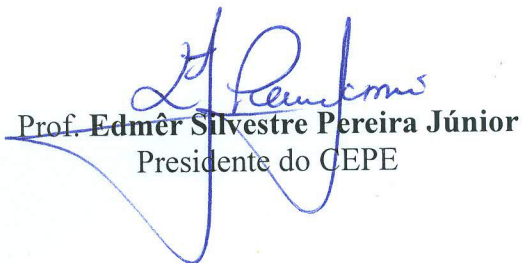 Prof. Edmêr Silvestre Pereira Júnior
Presidente do CEPE